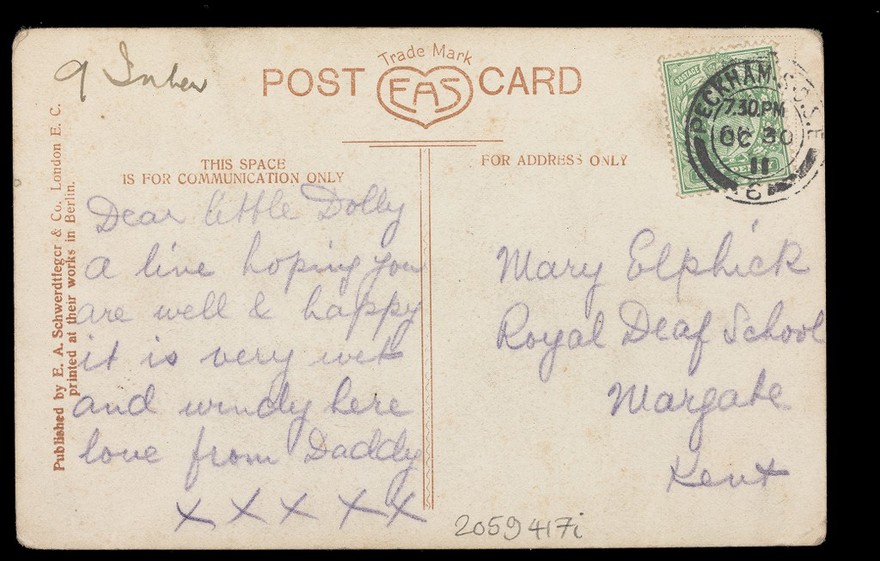 9
Trade Mark
POST EAS CARD
THIS SPACE
IS FOR COMMUNICATION ONLY
FOR ADDRESS ONLY
POSTAGE
PECKHAM. S.O.S.E
7.30.PM
OC 30
11
6
Published by E. A. Schwerdtfeger & Co. London E. C.
printed at their works in Berlin.
Dear little Dolly
a line hoping you
are well & happy
it is very wet
and windy here
love from Daddy
x x x x x
Mary Elphick
Royal Deaf School
Margate
Kent
2059417i